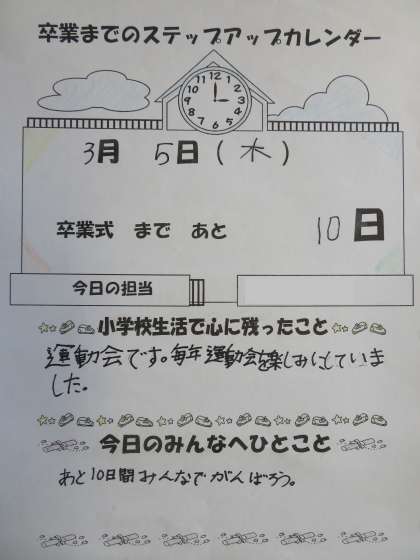 卒業までのステップアップカレンダー
12
11 1
10 2
9 3
8 4
7 5
6
3月 5日(木)
卒業式 まで あと 10日
今日の担当
小学校生活で心に残ったこと
運動会です。毎年運動会を楽しみにしていま
した。
今日のみんなへひとこと
あと10日間みんなでがんばろう。